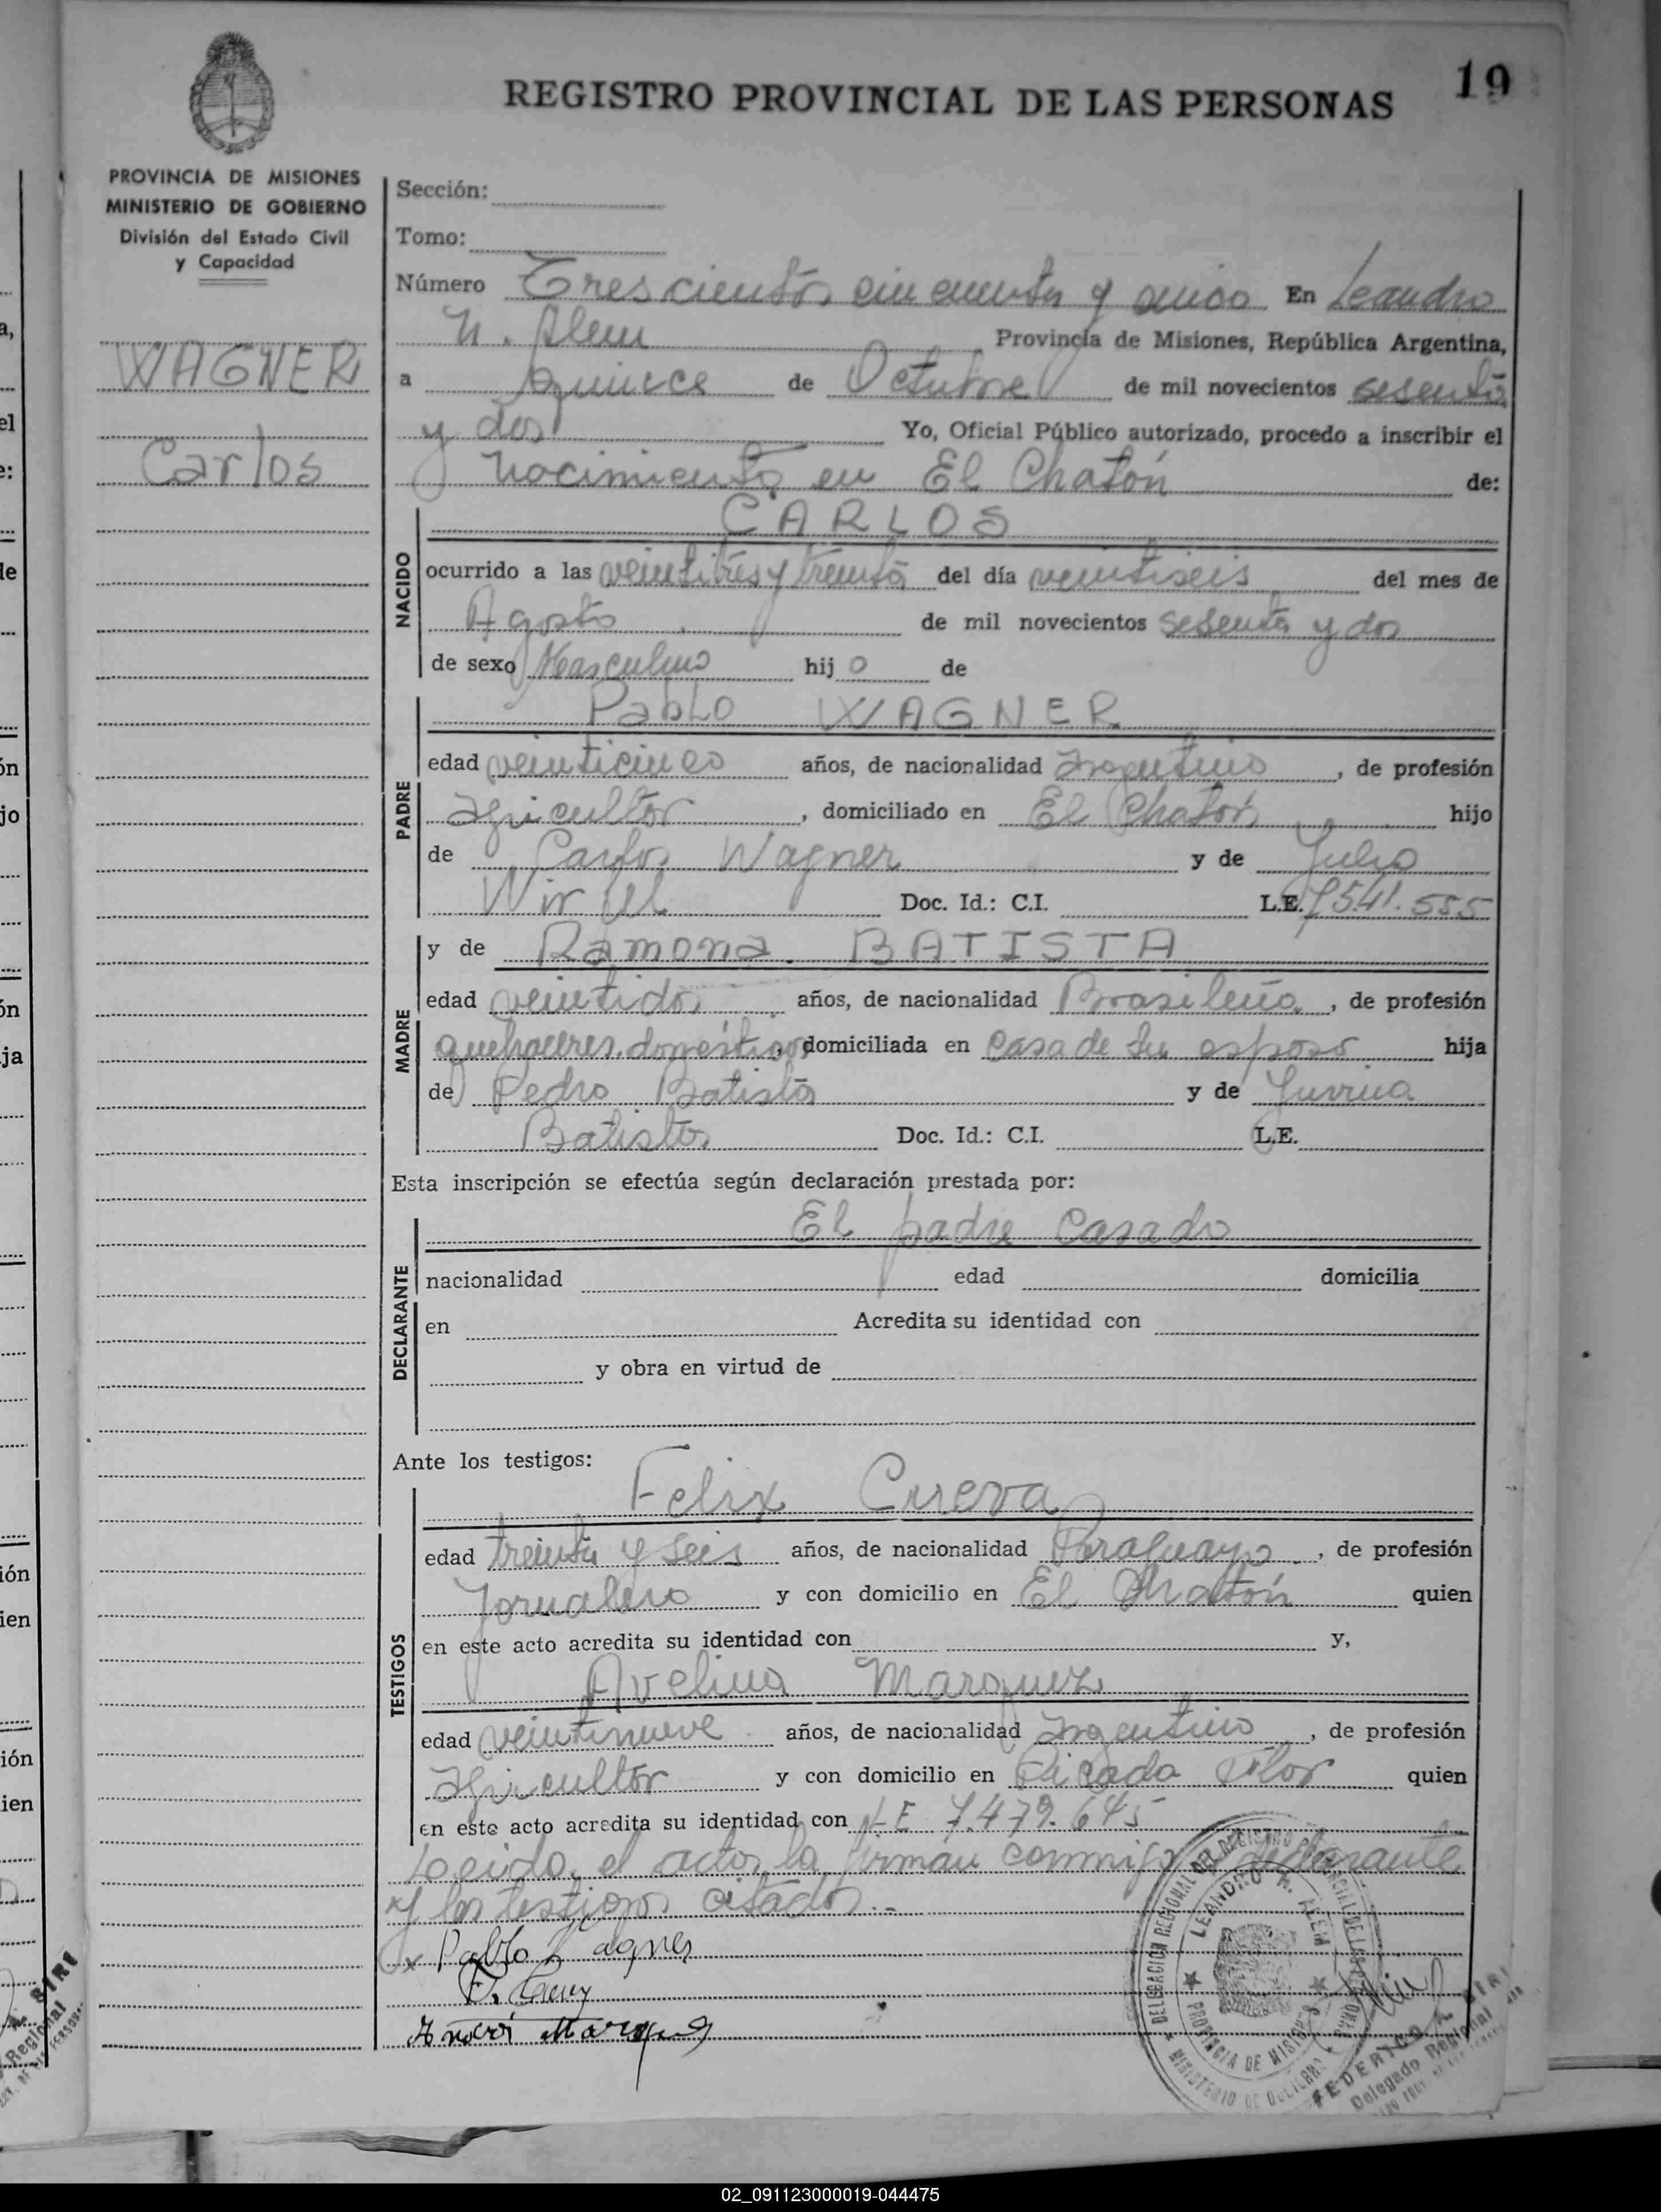 19
REGISTRO PROVINCIAL DE LAS PERSONAS
PROVINCIA DE MISIONES
MINISTERIO DE GOBIERNO
División del Estado Civil
y Capacidad
WAGNER
Carlos
Sección:
Tomo:
Número Trescientos cincuenta y cinco En Leandro
N. Alem Provincia de Misiones, República Argentina,
a quince de Octubre de mil novecientos sesenta
y dos Yo, Oficial Público autorizado, procedo a inscribir el
nacimiento en El Chatón de:
CARLOS
NACIDO
ocurrido a las veintitres y treinta del día veintiseis del mes de
Agosto de mil novecientos sesenta y dos
de sexo Masculino hijo de
Pablo WAGNER
PADRE
edad veinticinco años, de nacionalidad Argentino, de profesión
Agricultor, domiciliado en El Chatón hijo
de Carlos Wagner y de Julia
Doc. Id.: C.I. L.E. 7541.555
y de Ramona BATISTA
MADRE
edad veintidos años, de nacionalidad Brasileña, de profesión
quehaceres domésticos, domiciliada en casa de su esposo hija
de Pedro Batista y de
Batista Doc. Id.: C.I. L.E.
Esta inscripción se efectúa según declaración prestada por:
El padre casado
DECLARANTE
nacionalidad edad domicilia
en Acredita su identidad con
y obra en virtud de
Ante los testigos:
Felix Cueva
TESTIGOS
edad treinta y seis años, de nacionalidad Paraguayo, de profesión
Jornalero y con domicilio en El Chatón quien
en este acto acredita su identidad con y,
Avelino Marquez
edad veintinueve años, de nacionalidad Argentino, de profesión
Agricultor y con domicilio en Picada Flor quien
en este acto acredita su identidad con LE 7.479.645
Leida el acta, la firman conmigo declarante
y los testigos citados.-
x Pablo Wagner
DELEGACION REGIONAL DEL REGISTRO PROVINCIAL DE LAS PERSONAS
LEANDRO N. ALEM
PROVINCIA DE MISIONES
MINISTERIO DE GOBIERNO
FEDERICO A. SIRI
Delegado Regional
02_091123000019-044475